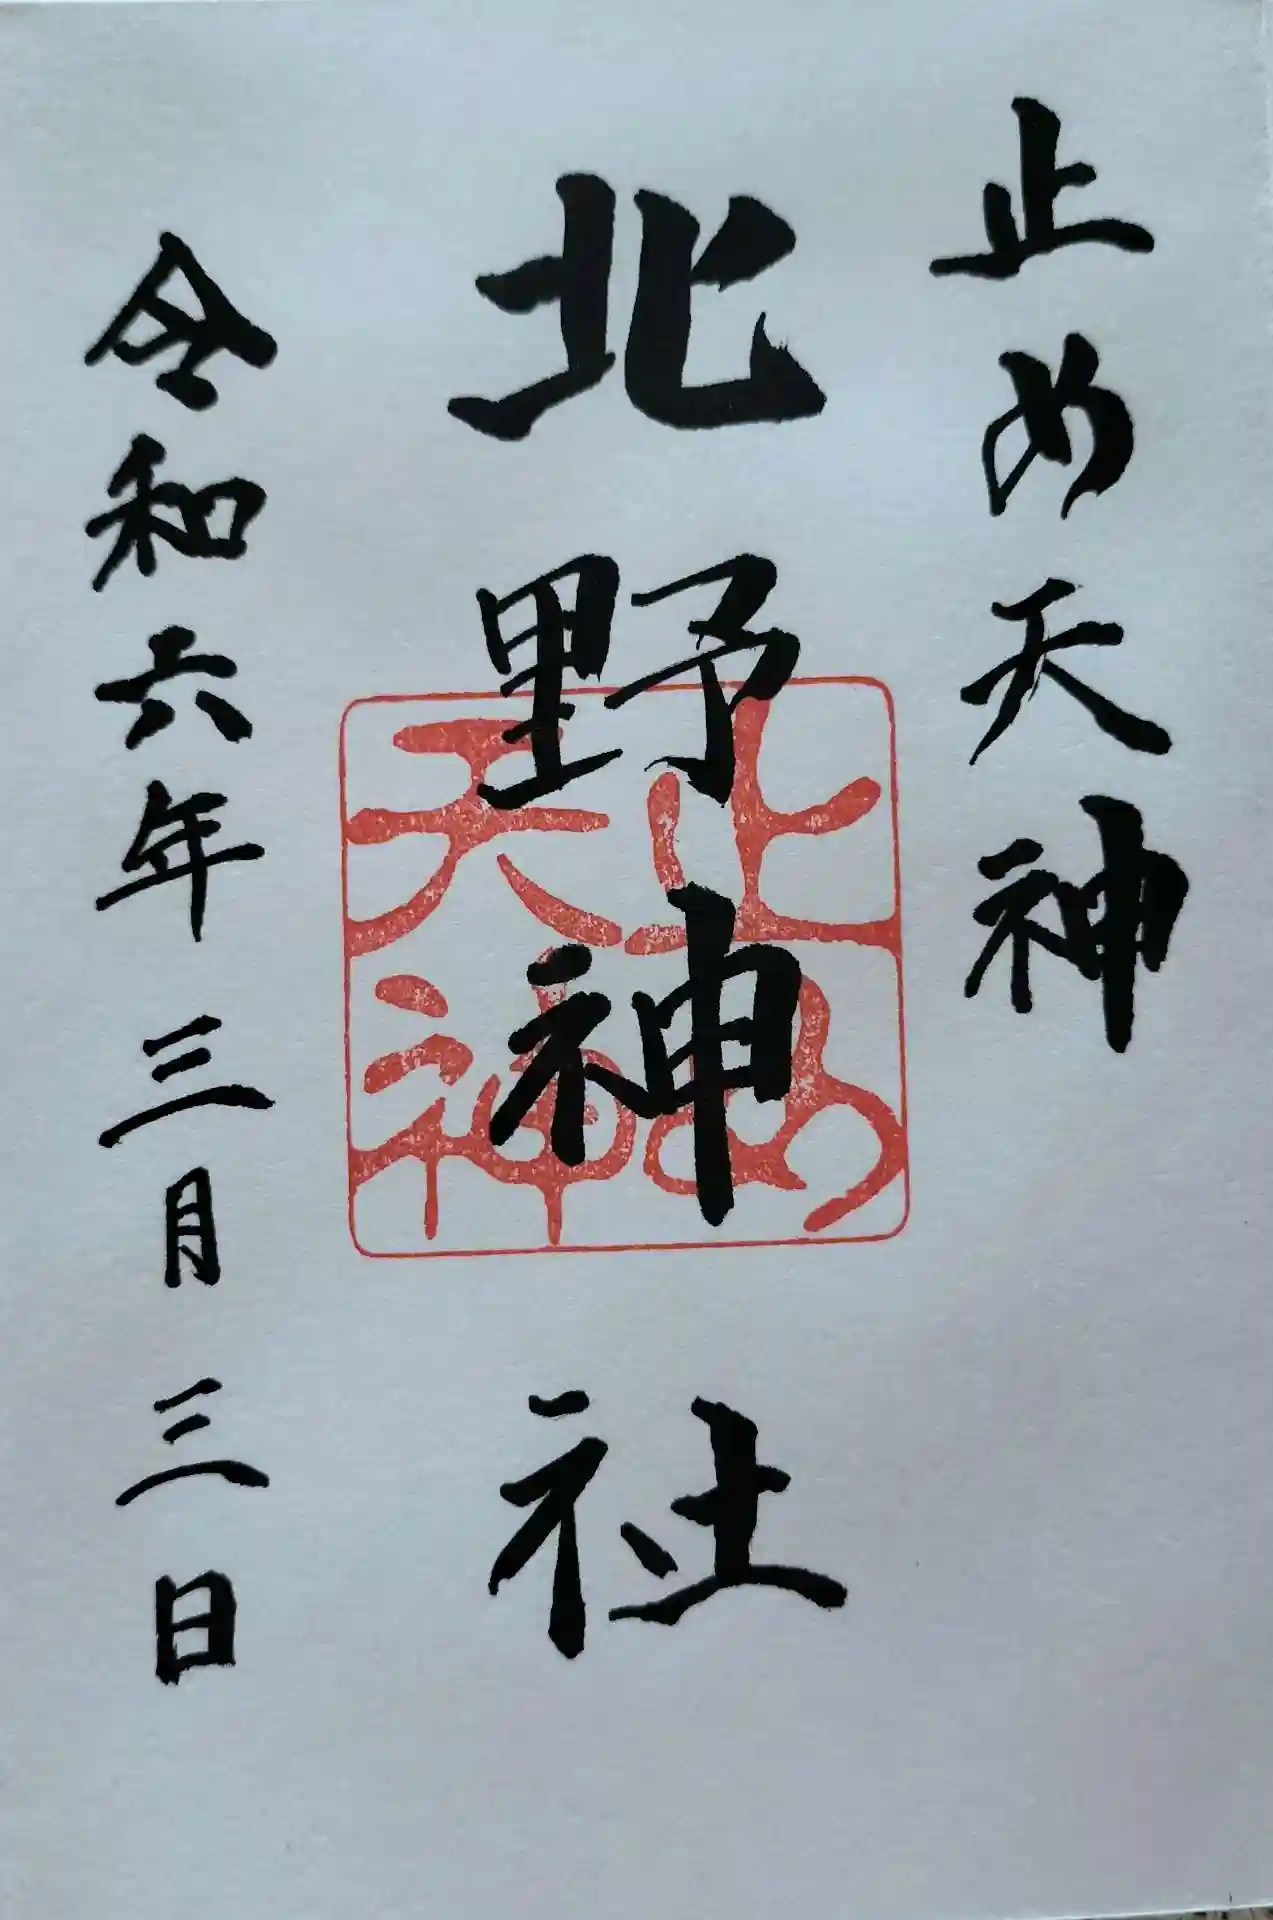 止め天神
北野神社
止め天神
令和六年三月三日